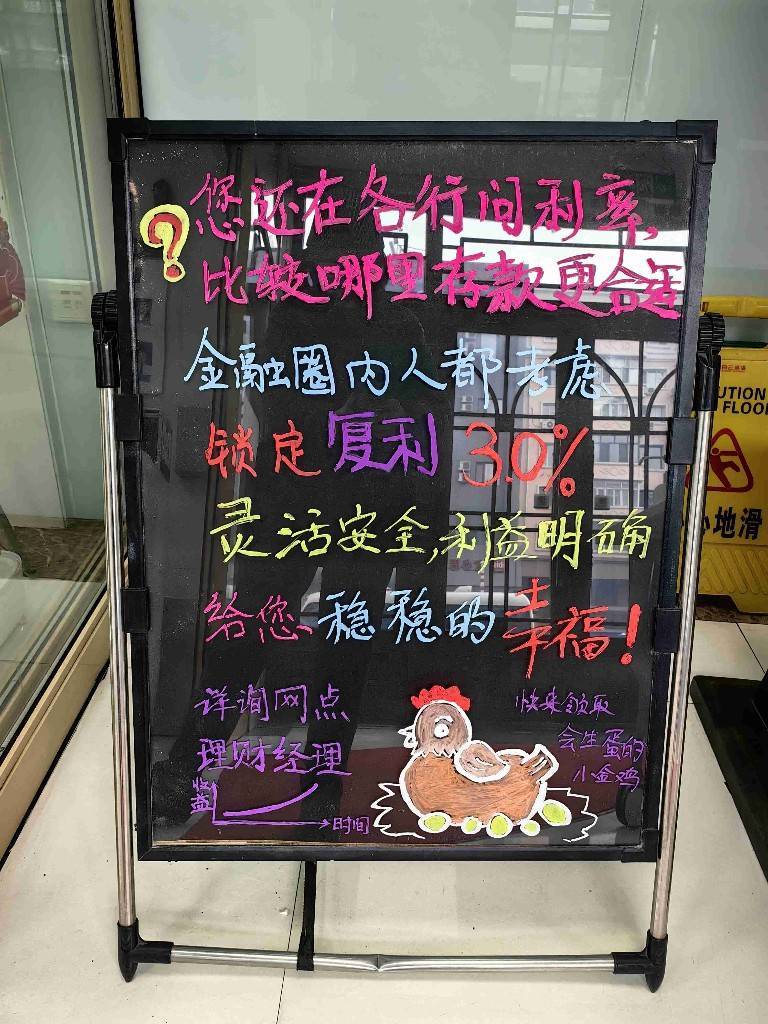 您还在各行问利率,
比较哪里存款更合适
?
金融圈内人都考虑
锁定复利3.0%
灵活安全,利益明确
给您稳稳的幸福!
详询网点
理财经理
快来领取
会生蛋的
小金鸡
收益
时间
UTION
FLOOR
心地滑